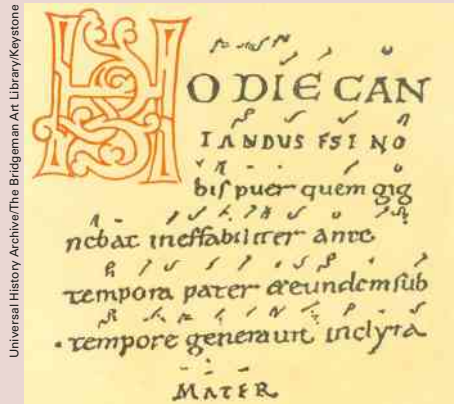 Universal History Archive/The Bridgeman Art Library/Keystone
HODIE CAN
TANDUS EST NO
bis puer quem gig
nebat ineffabiliter ante
tempora pater et eundem sub
tempore generauit inclyta
MATER